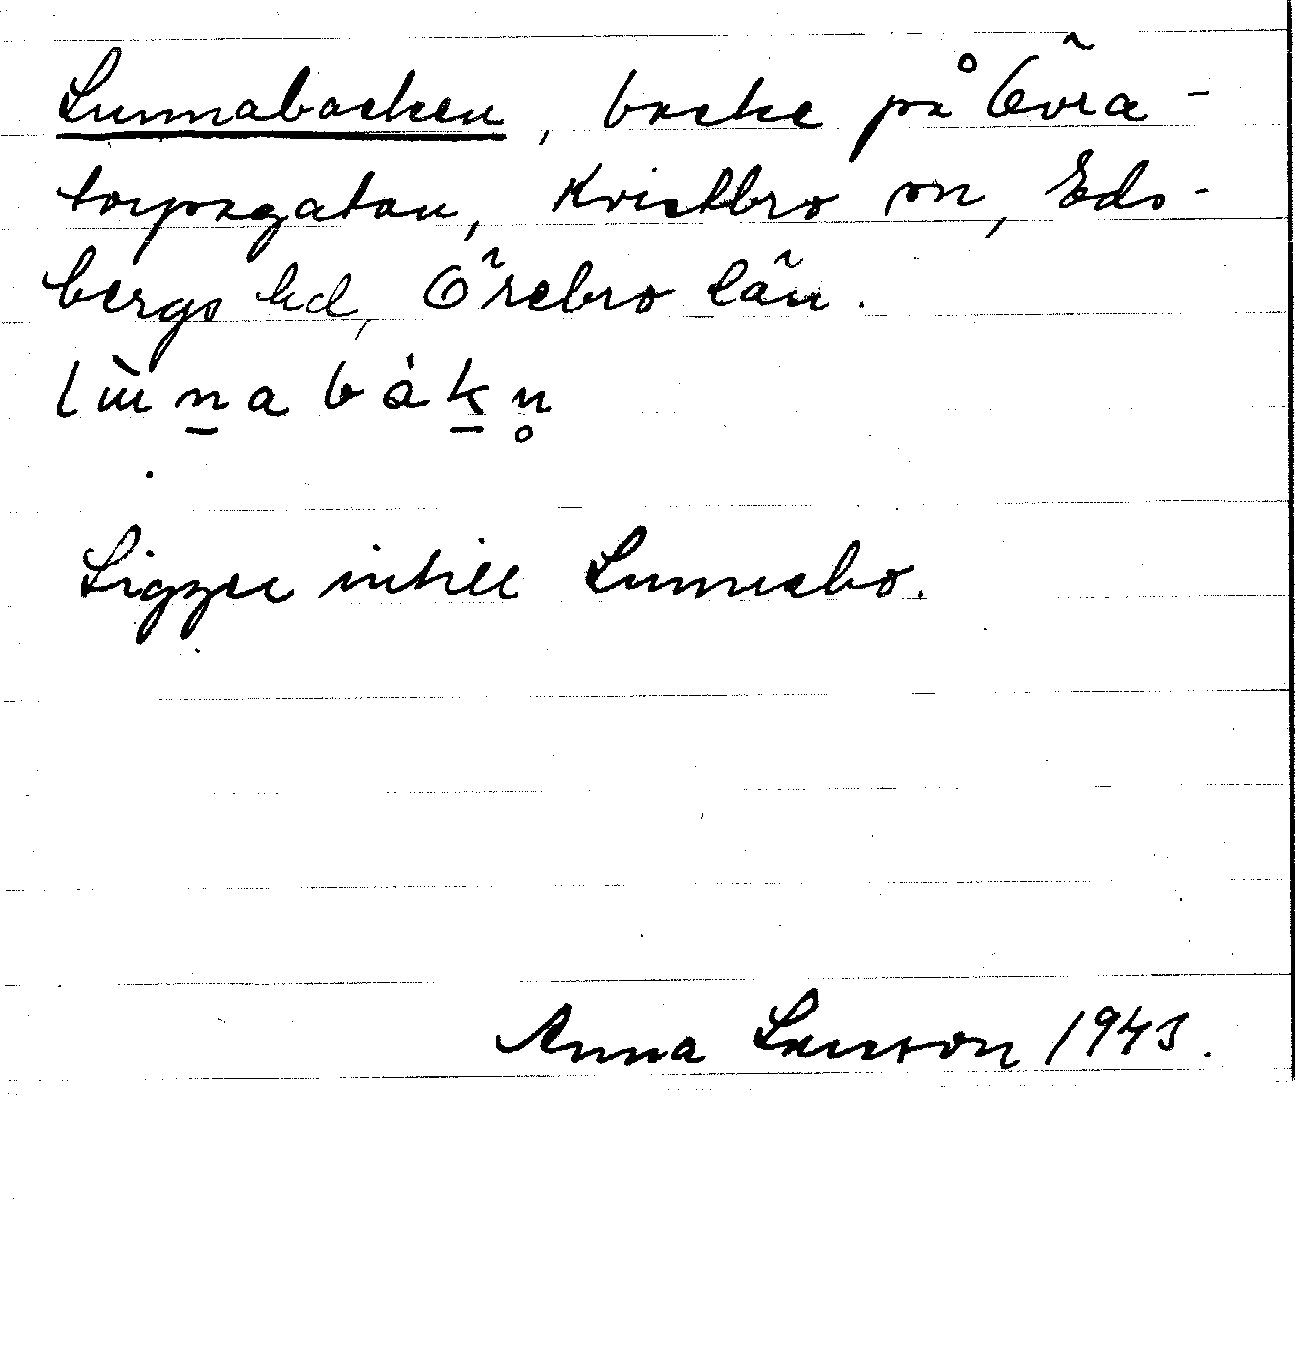 Lunnabacken, backe på Övra-
torpsgatan, Kvistbro sn, Eds-
bergs hd, Örebro län.
Ligger intill Lunnebo.
Anna Larsson 1943.